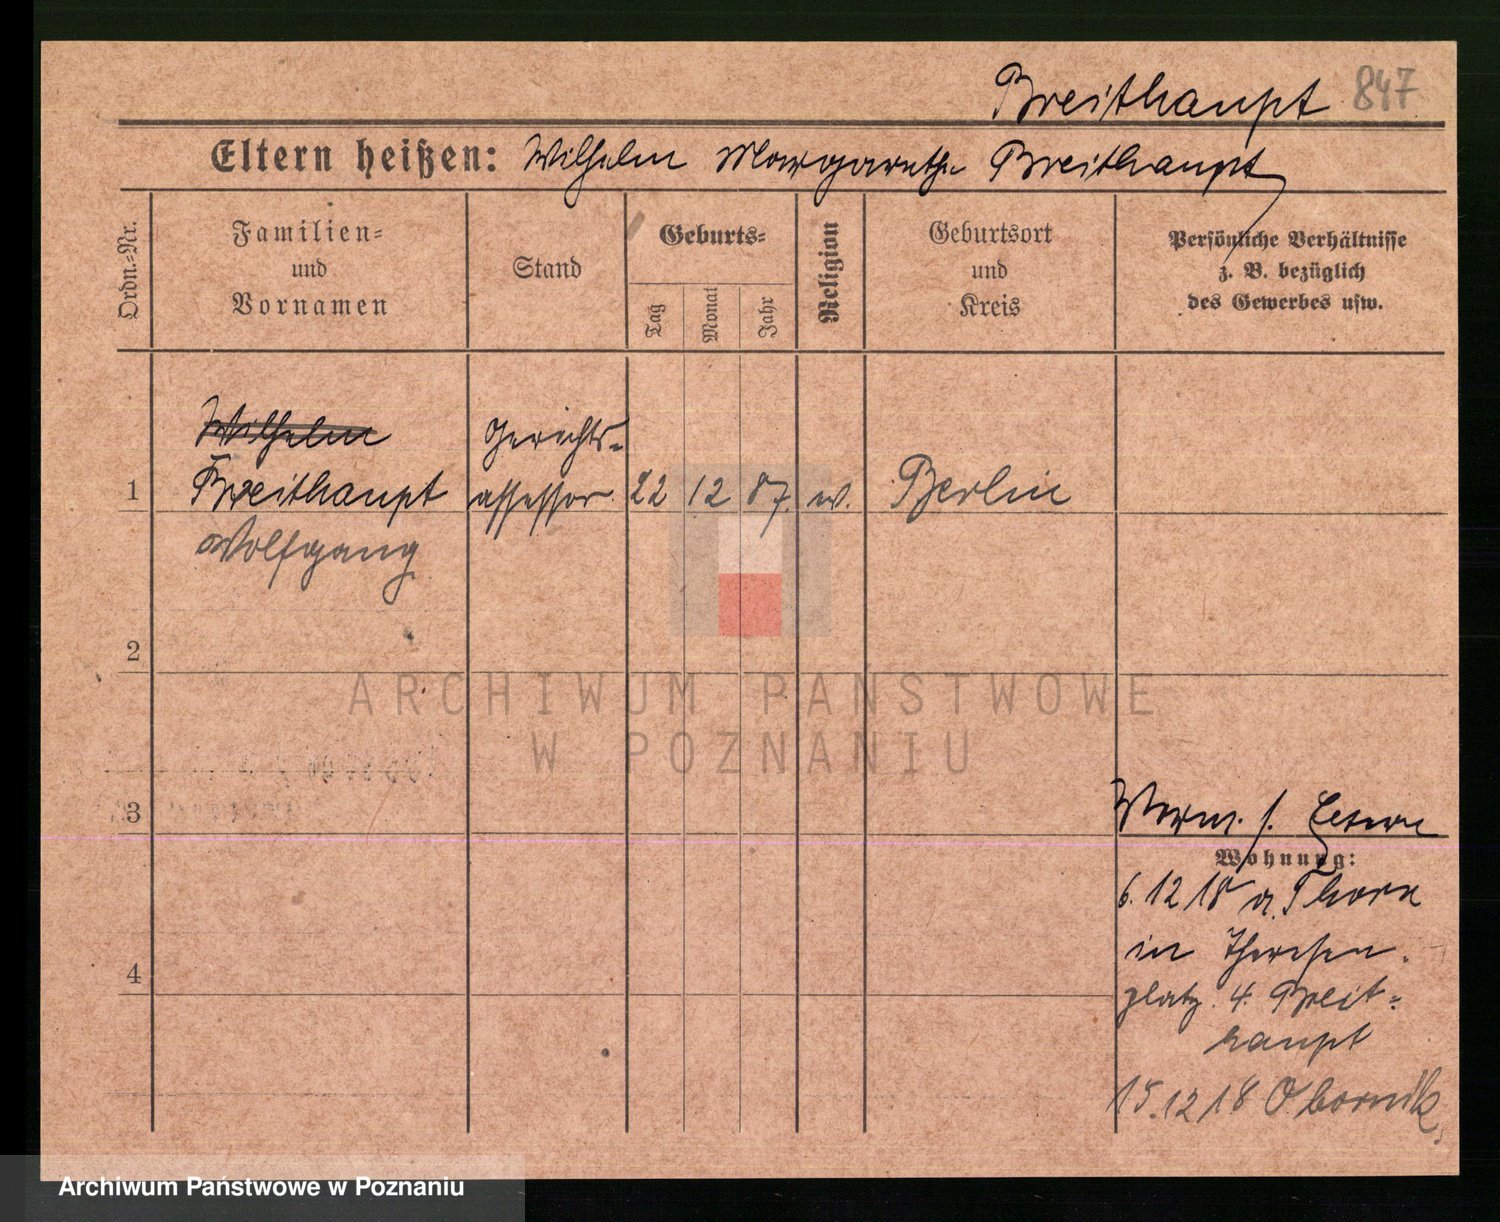 Breithaupt 847
Eltern heißen: Wilhelm Margarethe Breithaupt
Ordn.-Nr.
Familien-
und
Vornamen
Stand
Geburts-
Tag
Monat
Jahr
Religion
Geburtsort
und
Kreis
Persönliche Verhältnisse
z. B. bezüglich
des Gewerbes usw.
Wilhelm
Gerichts-
1 Breithaupt assessor 22 12 87. ev. Berlin
Wolfgang
2
ARCHIWUM PAŃSTWOWE
W POZNANIU
3
Verm. s.
Wohnung:
6. 12 18 a. Thorn
in Theresen.
4
platz. 4. Breit-
haupt
15.12 18 Obornik.
Archiwum Państwowe w Poznaniu